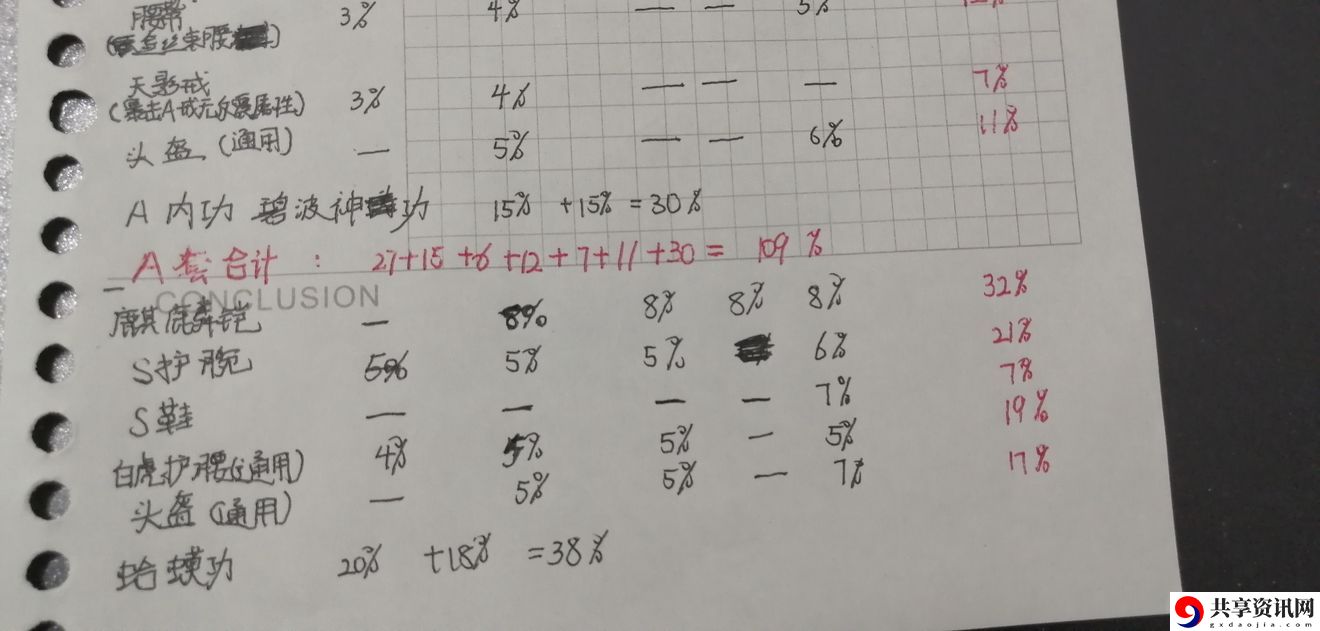 腰带 3% 4% — — 5%
金丝束腰
天影戒 3% 4% — — — 7%
(暴击A或元气属性)
头盔 (通用) — 5% — — 6% 11%
A 内功 碧波神功 15% +15% =30%
A套合计 : 27+15+6+12+7+11+30= 109%
CONCLUSION
麒麟铠 — 8% 8% 8% 8% 32%
S护腕 5% 5% 5% 6% 21%
S鞋 — — — — 7% 7%
白虎护腰(通用) 4% 5% 5% — 5% 19%
头盔 (通用) — 5% 5% — 7% 17%
蛤蟆功 20% +18% =38%
共享资讯网
gxdaojia.com